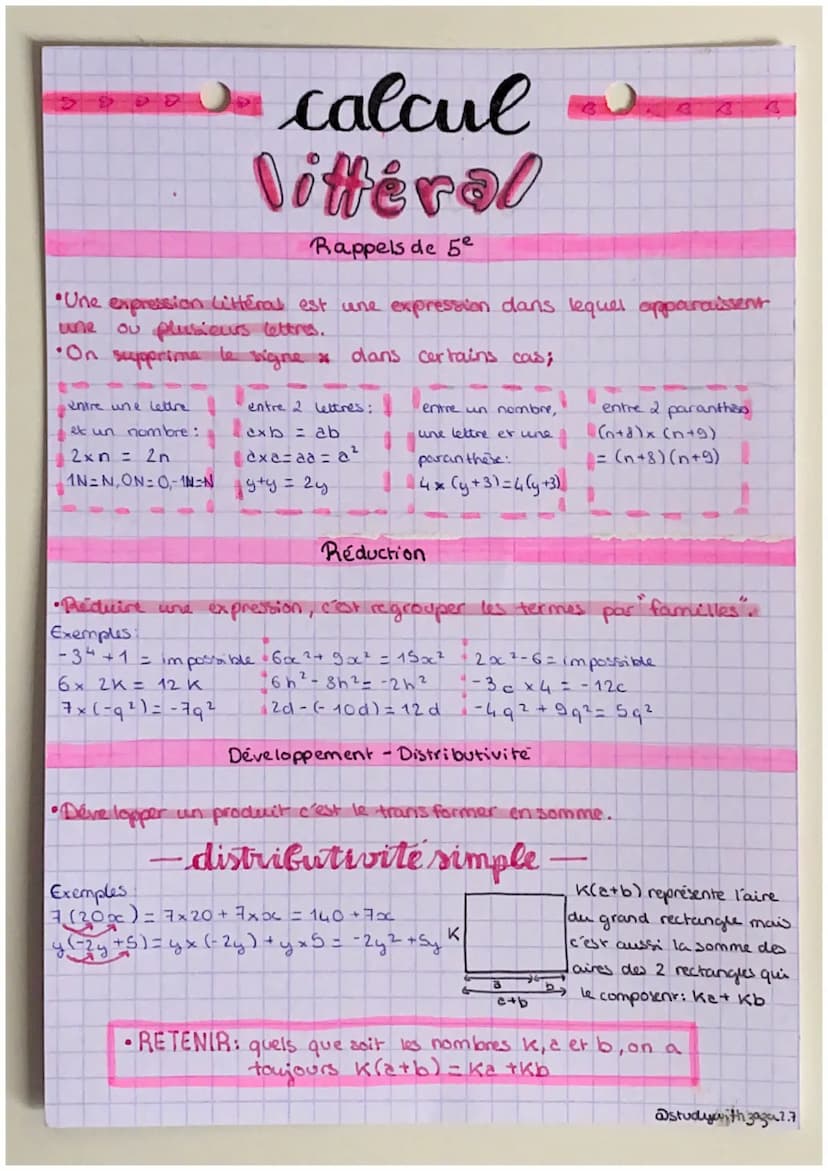 calcul
littéral
Rappels de 5e
•Une expression littéral est une expression dans lequel apparaissent
une ou plusieurs lettres.
•On supprime le signe x dans certains cas;
entre une lettre
et un nombre:
2xn = 2n
1N=N, 0N=0, -1N=N
entre 2 lettres:
axb = ab
axa=aa=a²
y+y = 2y
entre un nombre,
une lettre et une
paranthèse:
4 x (y+3)=4(y+3)
entre 2 paranthèse
(n+8)x (n+9)
= (n+8)(n+9)
Réduction
•Réduire une expression, c'est regrouper les termes par "familles".
Exemples:
-3⁴ +1 = impossible
6x 2K = 12 K
7x(-q²)= -7q²
6x²+ 9x² = 15x²
6h²- 8h²= -2h²
2d-(-10d)=12d
2x²-6= impossible
-3c x4 = -12c
-4q²+9q²= 5q²
Développement - Distributivité
•Développer un produit c'est le transformer en somme.
— distributivité simple —
Exemples
7(20x) = 7x20 + 7xx = 140 +7x
y(-2y+5)= yx(-2y) + yx5 = -2y² +5y
K
a
b
a+b
K(a+b) représente l'aire
du grand rectangle mais
c'est aussi la somme des
aires des 2 rectangles qui
le composent: Ka+ Kb
• RETENIR: quels que soit les nombres K, a et b, on a
toujours K(a+b) = Ka +Kb
@studywithzaza2.7